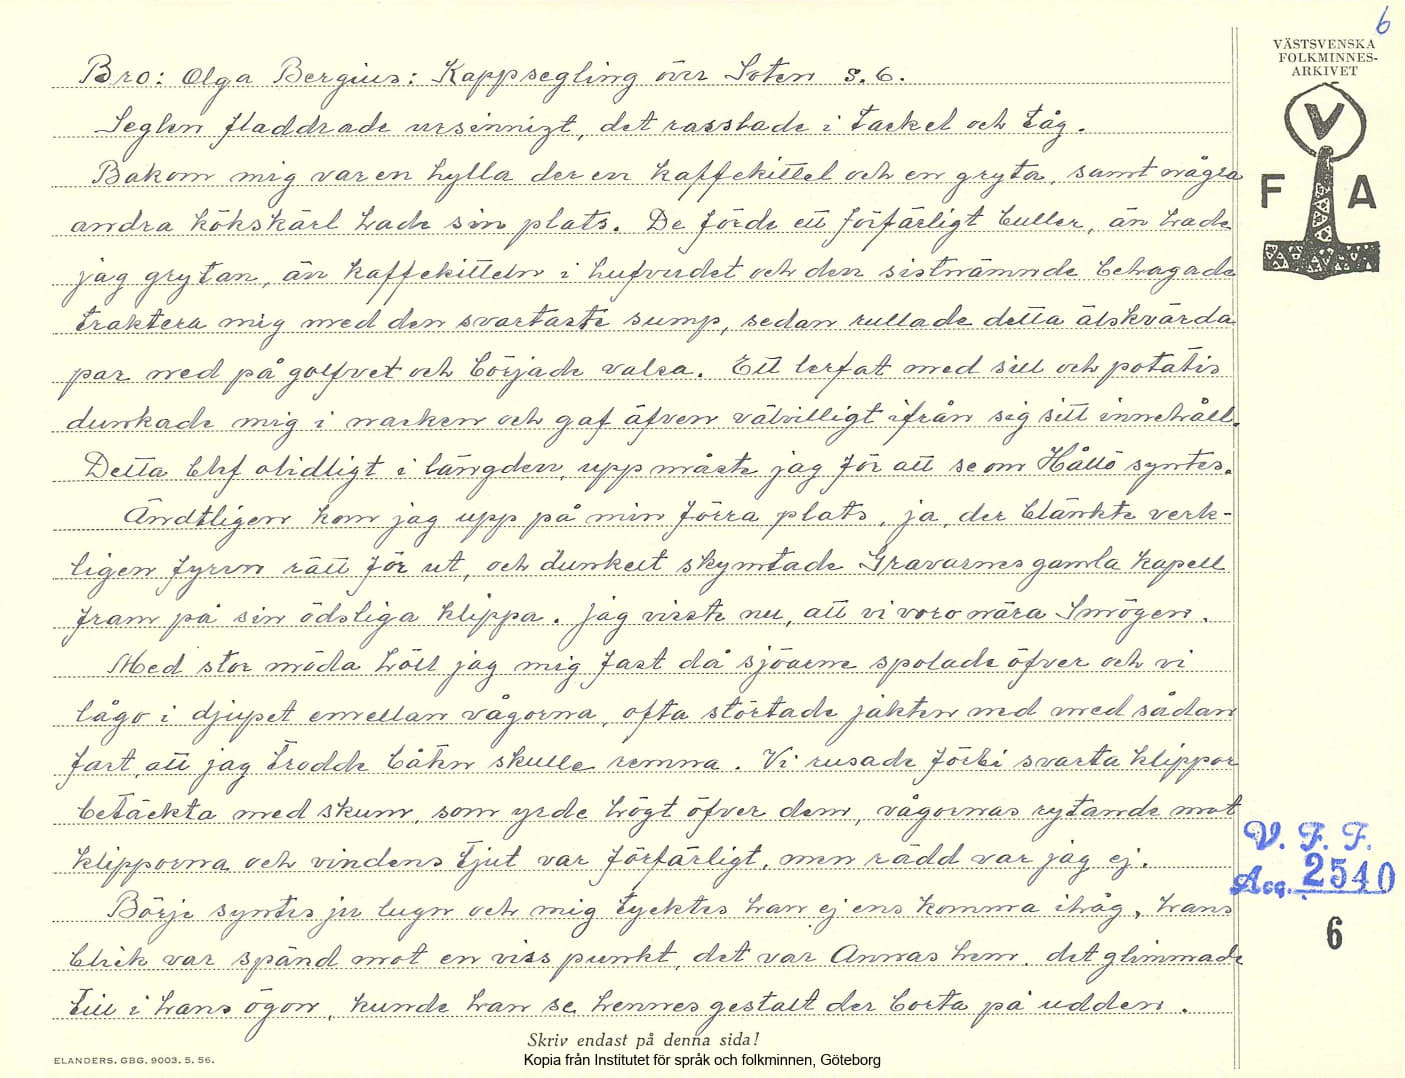 6
VÄSTSVENSKA
FOLKMINNES-
ARKIVET
V
F A
Bro: Olga Bergius: Kappsegling över Soten s. 6.
Seglen fladdrade ursinnigt, det rasslade i tackel och tåg.
Bakom mig var en hylla der en kaffekittel och en gryta, samt några
andra kökskärl hade sin plats. De förde ett förfärligt buller, än hade
jag grytan, än kaffekitteln i hufvudet och den sistnämnde behagade
traktera mig med den svartaste sump, sedan rullade detta älskvärda
par ned på golfvet och började valsa. Ett lerfat med sill och potatis
dunkade mig i nacken och gaf äfven välvilligt ifrån sig sitt innehåll.
Detta blef olidligt i längden, upp måste jag för att se om Hållö syntes.
Ändtligen kom jag upp på min förra plats, ja, der blänkte verk-
ligen fyren rätt för ut, och dunkelt skymtade Gravarnes gamla kapell
fram på sin ödsliga klippa. Jag visste nu, att vi voro nära Smögen.
Med stor möda höll jag mig fast då sjöarne spolade öfver och vi
lågo i djupet emellan vågorna, ofta störtade jakten ned med sådan
fart, att jag trodde båten skulle remna. Vi rusade förbi svarta klippor
betäckta med skum, som yrde högt öfver dem, vågornas rytande mot
klipporna och vindens tjut var förfärligt, men rädd var jag ej.
Börje syntes ju lugn och mig tycktes han ej ens komma ihåg, hans
blick var spänd mot en viss punkt, det var Annas hem, det glimmade
till i hans ögon, kunde han se hennes gestalt der borta på udden.
V. F. F.
Acq. 2540
6
Skriv endast på denna sida!
ELANDERS. GBG. 9003. 5. 56.
Kopia från Institutet för språk och folkminnen, Göteborg